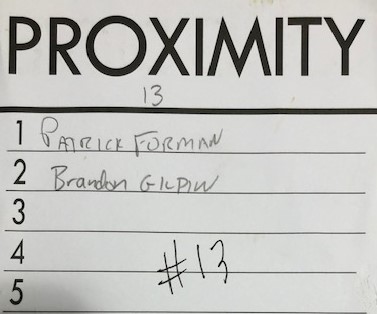 PROXIMITY
13
1 PATRICK FORMAN
2 Brandon GILPIN
3
4
#13
5